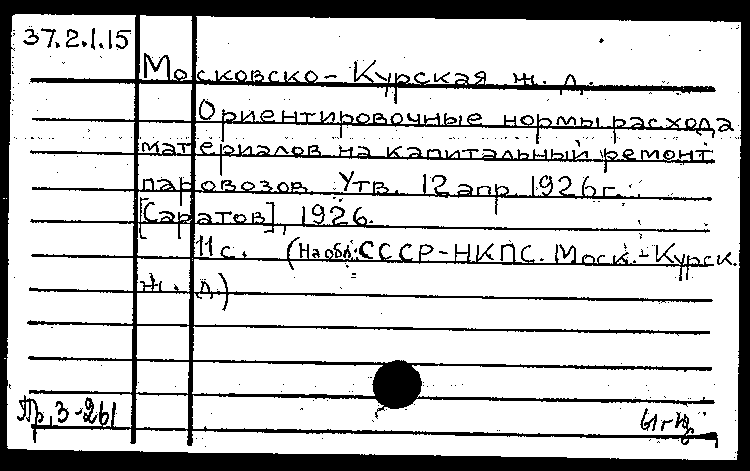 37.2.1.15
Московско-Курская ж. д.
Ориентировочные нормы расхода
материалов на капитальный ремонт
паровозов. Утв. 12 апр. 1926г.
[Саратов], 1926.
11 с. (На обл.: СССР-НКПС. Моск.-Курск.
ж. д.)
Пр, 3-261